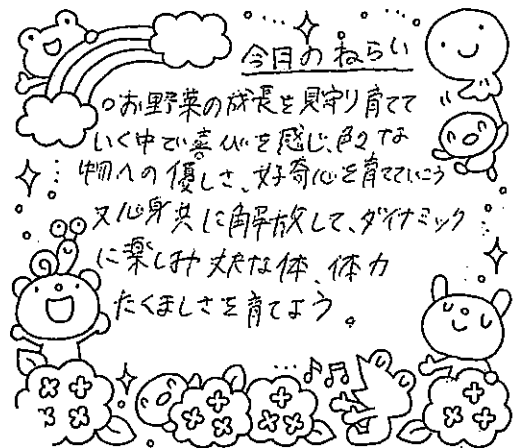 今日のねらい
○お野菜の成長を見守り育てて
いく中で喜びを感じ、色々な
物への優しさ、好奇心を育てていこう
又心身共に解放して、ダイナミック
に楽しみ丈夫な体、体力
たくましさを育てよう。